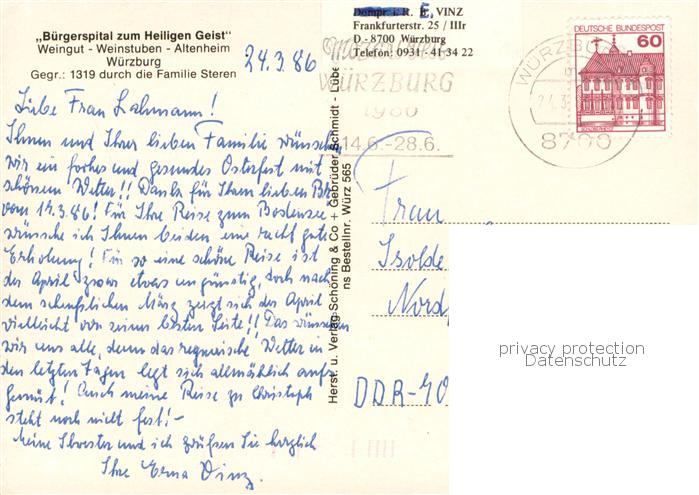 „Bürgerspital zum Heiligen Geist"
Weingut - Weinstuben - Altenheim
Würzburg
Gegr.: 1319 durch die Familie Steren
24.3.86
Liebe Frau Lahmann!
Ihnen und Ihrer lieben Familie wünschen
wir ein frohes und gesundes Osterfest mit
schönem Wetter!! Dank für Ihren lieben
vom 14.3.86! Für Ihre Reise zum Bodensee
wünsche ich Ihnen beiden eine recht gute
Erholung! Für so eine schöne Reise ist
der April zwar etwas ungünstig, doch nach
dem scheußlichen März zeigt sich der April
vielleicht von seiner besten Seite!! Das wünschen
wir uns alle, denn das regnerische Wetter in
den letzten Tagen legt sich allmählich aufs
Gemüt! Auch meine Reise zu Christoph
steht noch nicht fest! -
Meine Schwester und ich grüßen Sie herzlich
Ihre Erna Vinz.
Herst. u. Verlag Schöning & Co + Gebrüder Schmidt - Lübe
ns Bestellnr. Würz 565
Dompr. i. R. E. VINZ
Frankfurterstr. 25 / IIIr
D - 8700 Würzburg
Telefon: 0931 - 41 34 22
WÜRZBURG
1986
14.6.-28.6.
WÜRZBURG
8700
DEUTSCHE BUNDESPOST
60
Frau
Isolde
Nord
DDR-40
privacy protection
Datenschutz